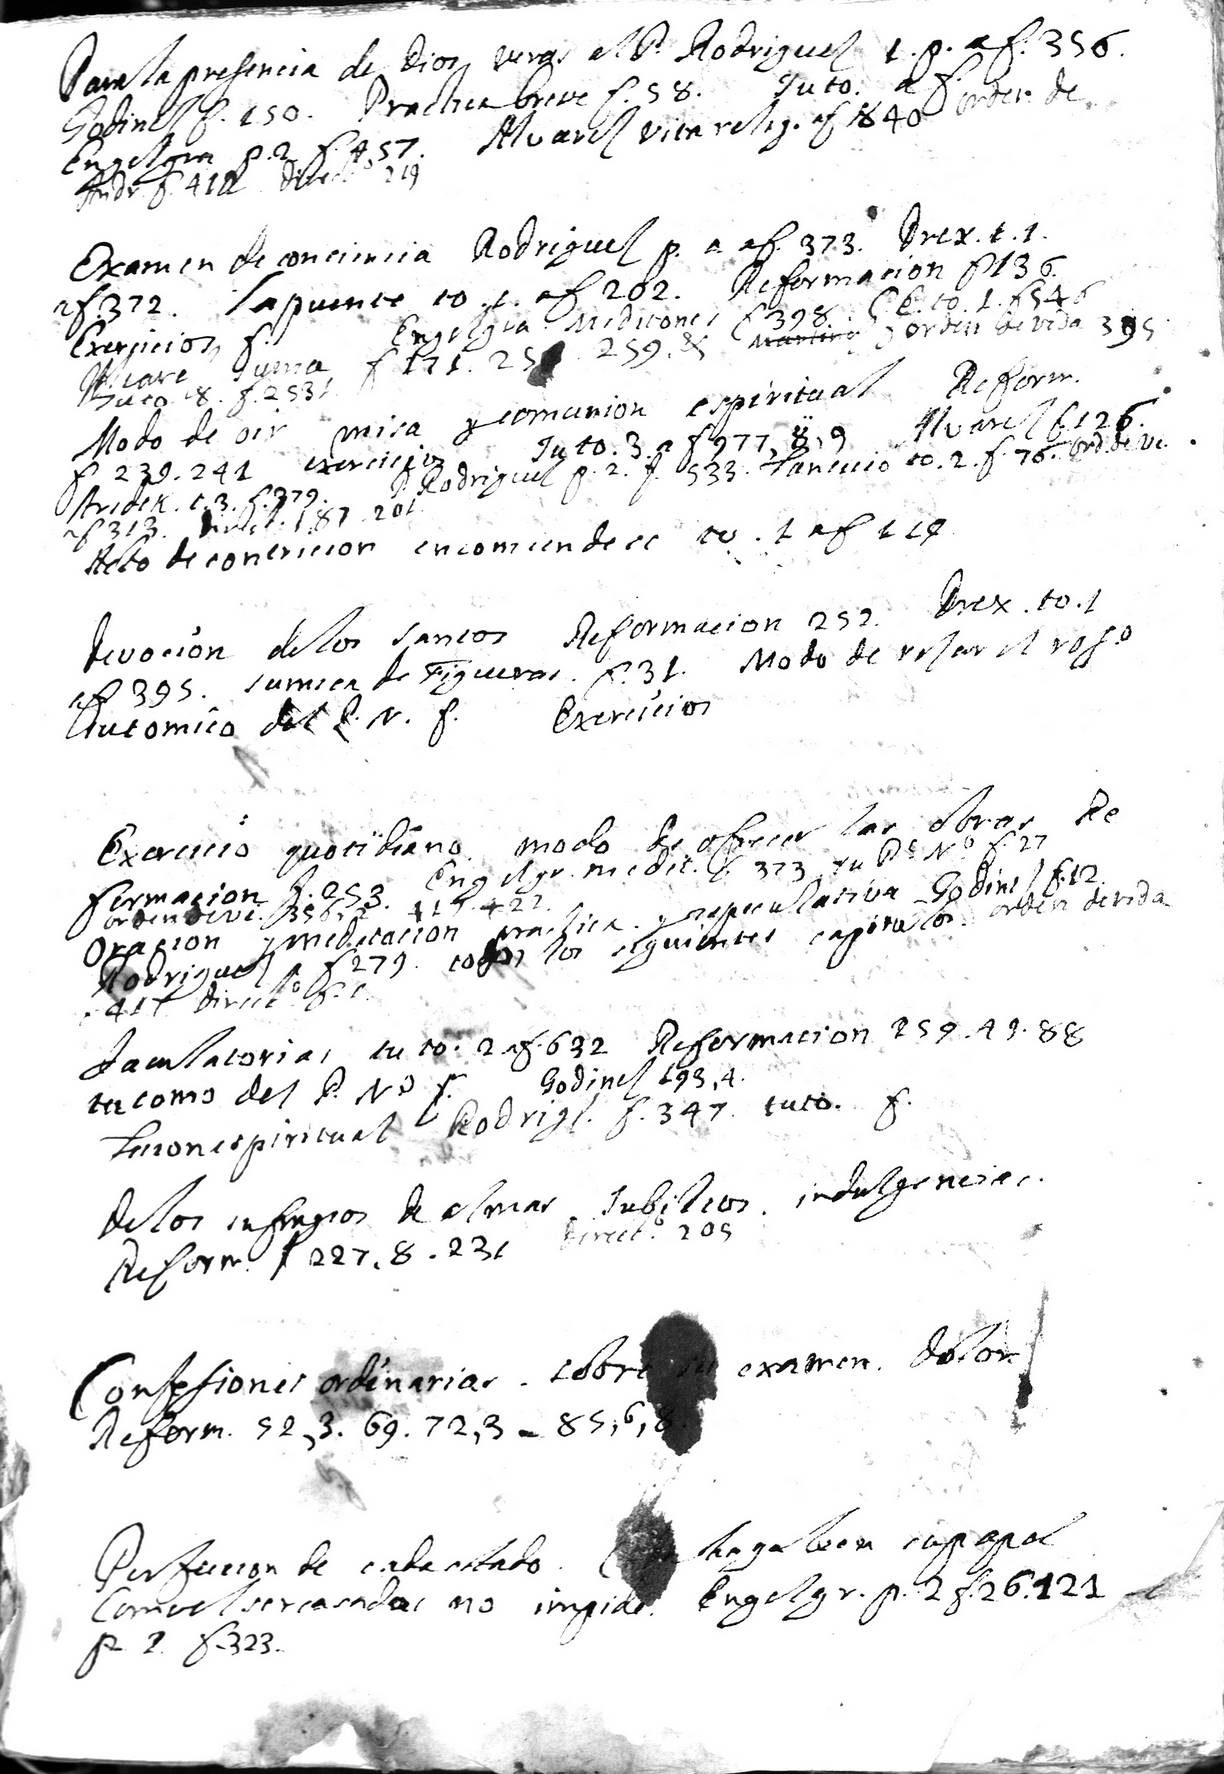 Para la presencia de Dios veras al P. Rodriguez 1. p. a f. 356.
Godinez f. 150. Practica breve f. 58. Tuto. a f.
Engelgra p. 2 f. 457. Alvarez vita relig. af 840 orden de
Andr. f. 412 direct.º 219
Examen de conciencia Rodriguez p. a. af. 373. Drex. t. 1.
af. 372. Lapuente to. 1. af 202. Reformacion f 136.
Exercicios f. Engelgra Meditones f 398. to. 1. f 546
Suma f 171. 259. orden de vida 395
Tuto 8. f. 253
Modo de oir misa y comunion espiritual Reform.
f. 239. 241 exercicios Tu to. 3. a f 977, 8, 9 Alvarez f. 126.
t. 3. f. 379. Rodriguez p. 2. f. 533. to. 2. f. 76. ord. de vi.
af 313. direct. 187. 201
Acto de contricion to. 1 af 119
Devocion de los santos Reformacion 252. Drex. to. 1
af 395. sumica de Figueras. f. 31. Modo de resar el rosº
del P. N. f. Exercicios
Exercicio quotidiano modo de ofrecer las obras Re
formacion f. 253. Engelgr. medit. f. 373 tu Pe Nº f. 27
orden de vi. 356. 417. 422.
Oracion y meditacion practica y especulativa Godinez f. 12.
Rodriguez f 279. todos los siguientes capitulos. orden de vida
417 direct.º f. 1
Jaculatorias tu to. 2 af. 632 Reformacion 259. 49. 88
tu tomo del P. Nº f. Godinez 193, 4.
Lecion espiritual Rodrigz. f. 347 tuto. f.
De los sufragios de almas. Jubileos. indulgencias.
Reform. f 227, 8. 231 direct.º 205
Confessiones ordinarias. sobre su examen. dolor
Reform. 52, 3. 69. 72, 3 - 85, 6, 8.
Perfeccion de cada estado. haga bien su papel
Como el ser casadas no impide. Engelgr. p. 2 f. 26. 121
p 1. f. 323.